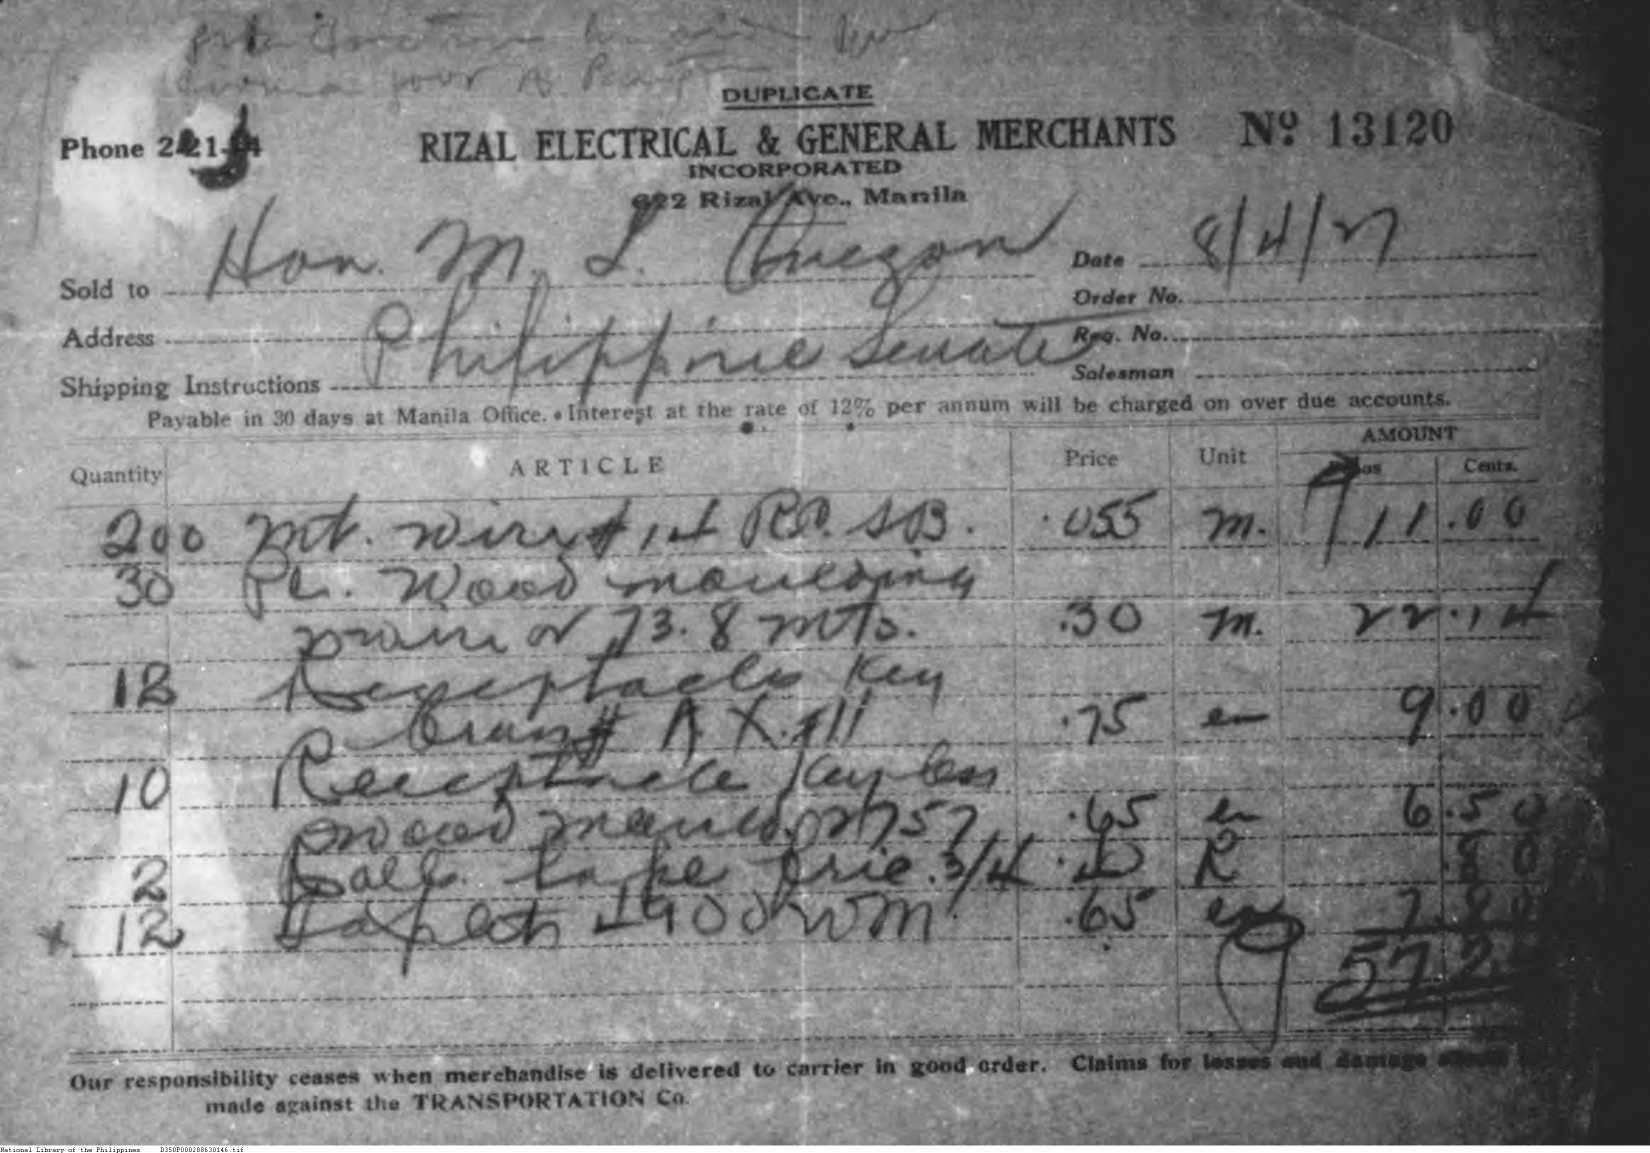 DUPLICATE
Phone 2-21-
RIZAL ELECTRICAL & GENERAL MERCHANTS Nº 13120
INCORPORATED
622 Rizal Ave., Manila
Sold to Hon. M. L. Quezon Date 8/4/27
Order No.
Address Philippine Senate Req. No.
Shipping Instructions Salesman
Payable in 30 days at Manila Office. Interest at the rate of 12% per annum will be charged on over due accounts.
Quantity ARTICLE Price Unit AMOUNT
Pesos Cents.
200 Mt. wire # 14 R.C. S.B. .055 m. 11.00
30 Pc. Wood moulding
73.8 mts. .30 m. 22.14
12 Receptacles Key
# .75 ea 9.00
10 Receptacle Keyless
wood 757 .65 ea 6.50
2 tape fric. 3/4 .40 R .80
12 .65 ea 7.80
57.2
Our responsibility ceases when merchandise is delivered to carrier in good order. Claims for losses and damage
made against the TRANSPORTATION Co.
National Library of the Philippines D350P000288630146.tif